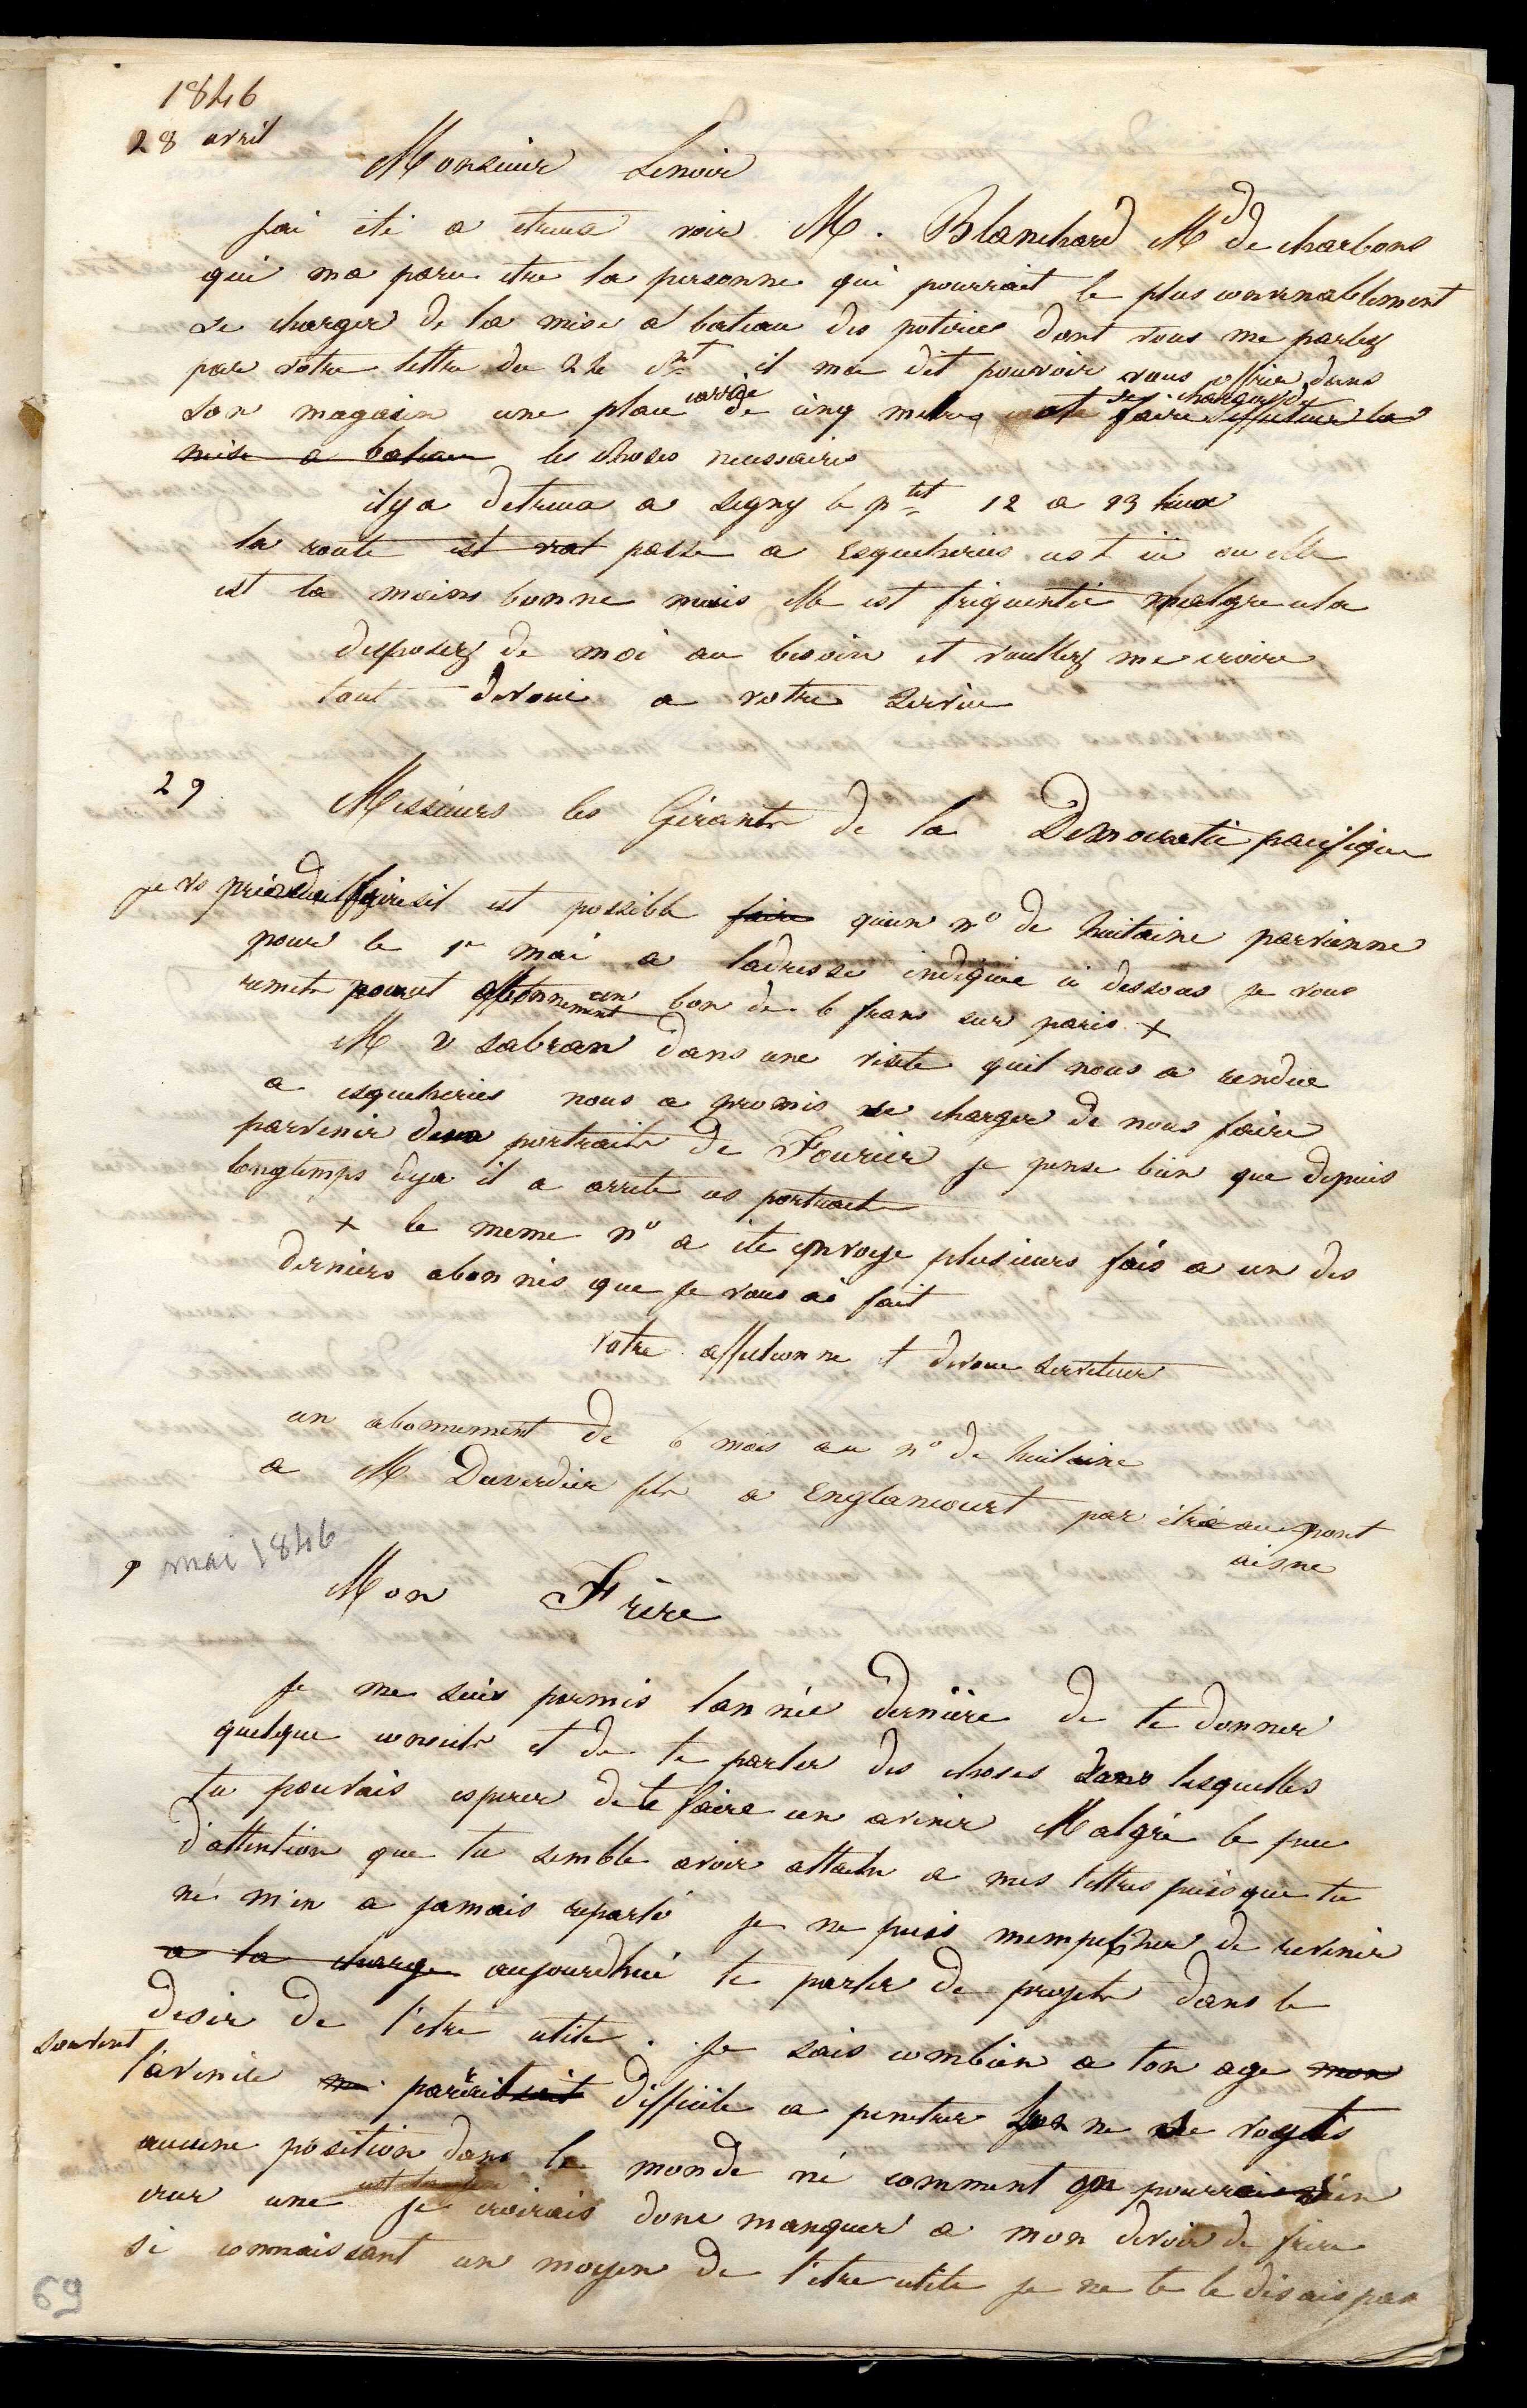 1846
28 avril
Monsieur Lenoir
jai été a etreux voir M. Blanchard Md de charbons
qui ma paru etre la personne qui pourrait le plus convenablement
se charger de la mise a bateau des poteries dont vous me parlez
par votre lettre du 22 ct il ma dit pouvoir vous offrir dans
son magasin une place carrée de cinq metres et se charger de faire effectuer la
mise a bateau les choses necessaires
il y a detreux a Signy le ptit 12 a 13 lieux
la route est passe a Esqueheries cest ici ou elle
est la moins bonne mais elle est fréquentée malgre cela
disposez de moi au besoin et veuillez me croire
tout devoué a votre service
29
Messieurs les Gérants de la Démocratie pacifique
je vs prie de faire sil est possible faire quun no de huitaine parvienne
pour le 1er mai a ladresse indiquée ci dessous je vous
remets pour cet abonnement un bon de 6 francs sur paris +
M v sabran dans une visite quil nous a rendue
a esqueheries nous a promis se charger de nous faire
parvenir deux portraits de Fourier je pense bien que depuis
longtemps deja il a arrete ces portraits
+ le meme no a ete envoye plusieurs fois a un des
derniers abonnés que je vous ai fait
votre affectionne et devoue serviteur
un abonnement de 6 mois au no de huitaine
a M Duverdier fils a Englancourt par étréaupont
aisne
9 mai 1846
Mon Frère
je me suis permis lannée dernière de te donner
quelque conseils et de te parler des choses dans lesquelles
tu pouvais esperer de te faire un avenir Malgré le peu
d'attention que tu semble avoir attaché a mes lettres puisque tu
ne m'en a jamais reparlé je ne puis mempêcher de revenir
a la charge aujourdhui te parler de projets dans le
desir de t'etre utile. je sais combien a ton age mon
souvent
l'avenir me parait difficile a penetrer ne se voyant
aucune position dans le monde ni comment on pourrai sen
creer une je croirais donc manquer a mon devoir de frere
si connaissant un moyen de t'etre utile je ne te le disais pas
69